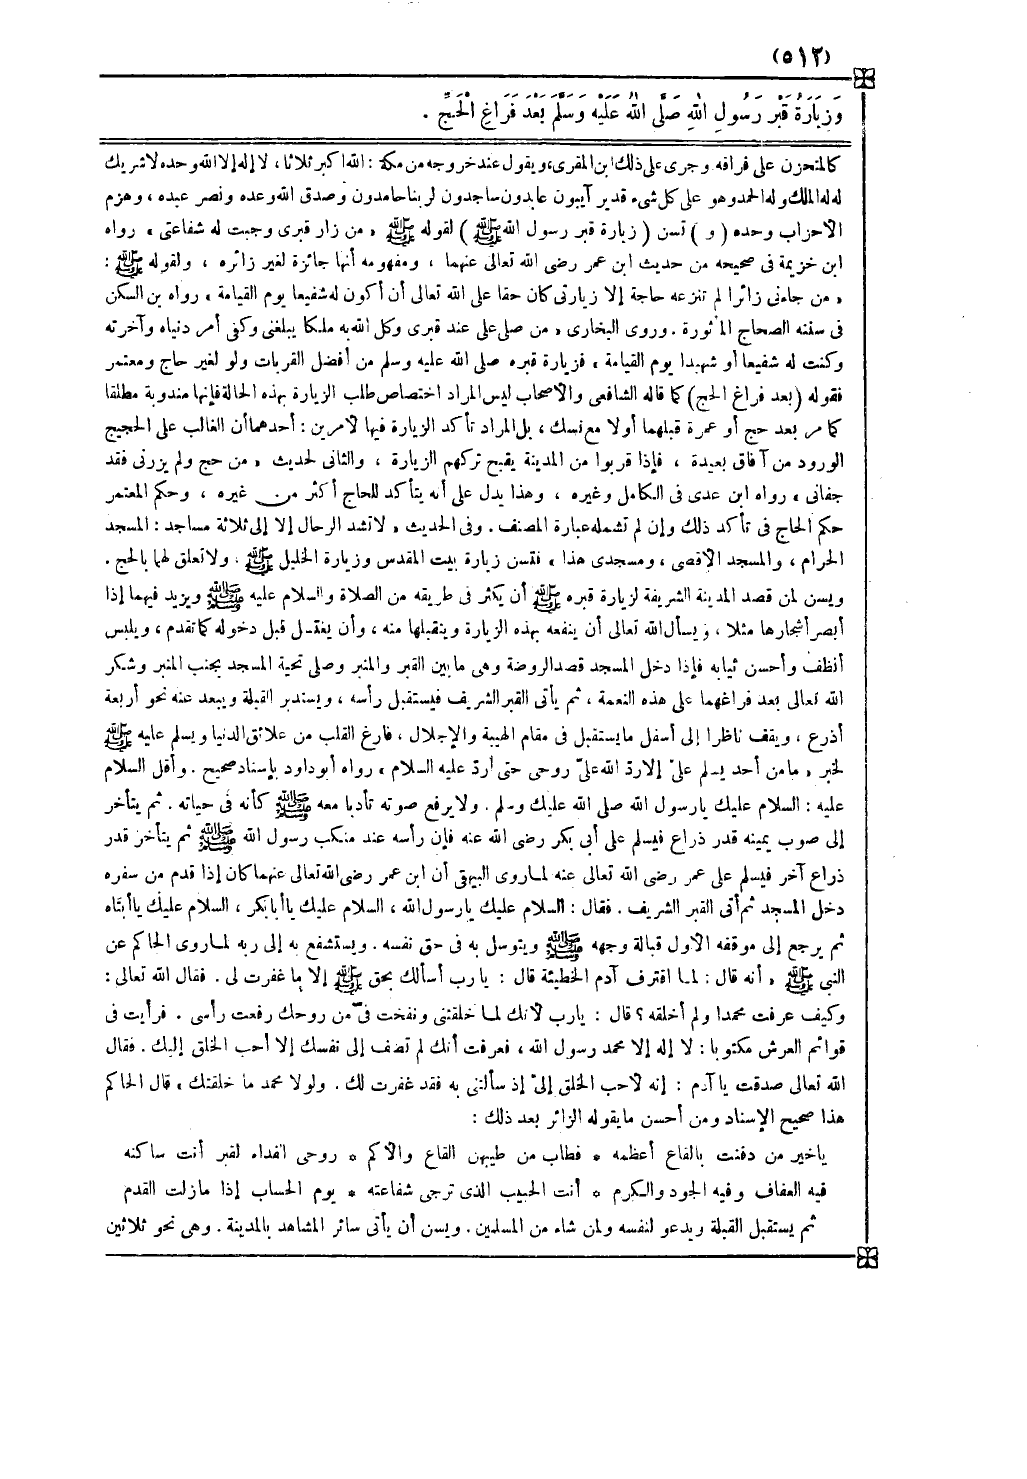 (٥١٢)
وَزِيَارَةُ قَبْرِ رَسُولِ اللهِ صَلَّى اللهُ عَلَيْهِ وَسَلَّمَ بَعْدَ فَرَاغِ الْحَجِّ .
كالمتحزن على فراقه وجرى على ذلك ابن المقرىء ويقول عند خروجه من مكة : الله اكبر ثلاثا ، لا إله إلا الله وحده لا شريك
له له الملك وله الحمد وهو على كل شىء قدير آيبون عابدون ساجدون لربنا حامدون وصدق الله وعده ونصر عبده ، وهزم
الأحزاب وحده ( و ) تسن ( زيارة قبر رسول الله ﷺ ) لقوله ﷺ « من زار قبرى وجبت له شفاعتى » رواه
ابن خزيمة فى صحيحه من حديث ابن عمر رضى الله تعالى عنهما ، ومفهومه أنها جائزة لغير زائره ، ولقوله ﷺ :
« من جاءنى زائرا لم تنزعه حاجة إلا زيارتى كان حقا على الله تعالى أن أكون له شفيعا يوم القيامة » رواه بن السكن
فى سننه الصحاج المأثورة . وروى البخارى « من صلى على عند قبرى وكل الله به ملكا يبلغنى وكفى أمر دنياه وآخرته
وكنت له شفيعا أو شهيدا يوم القيامة » فزيارة قبره صلى الله عليه وسلم من أفضل القربات ولو لغير حاج ومعتمر
فقوله (بعد فراغ الحج) كما قاله الشافعى والأصحاب ليس المراد اختصاص طلب الزيارة بهذه الحالة فإنها مندوبة مطلقا
كما مر بعد حج أو عمرة قبلهما أولا مع نسك ، بل المراد تأكد الزيارة فيها لأمرين : أحدهما أن الغالب على الحجيج
الورود من آفاق بعيدة ، فإذا قربوا من المدينة يقبح تركهم الزيارة ، والثانى لحديث « من حج ولم يزرنى فقد
جفانى » رواه ابن عدى فى الكامل وغيره ، وهذا يدل على أنه يتأكد للحاج أكثر من غيره ، وحكم المعتمر
حكم الحاج فى تأكد ذلك وإن لم تشمله عبارة المصنف . وفى الحديث « لا تشد الرحال إلا إلى ثلاثة مساجد : المسجد
الحرام ، والمسجد الأقصى ، ومسجدى هذا » فتسن زيارة بيت المقدس وزيارة الخليل ﷺ . ولا تعلق لهما بالحج .
ويسن لمن قصد المدينة الشريفة لزيارة قبره ﷺ أن يكثر فى طريقه من الصلاة والسلام عليه ﷺ ويزيد فيهما إذا
أبصر أشجارها مثلا ، ويسأل الله تعالى أن ينفعه بهذه الزيارة ويتقبلها منه ، وأن يغتسل قبل دخوله كما تقدم ، ويلبس
أنظف وأحسن ثيابه فإذا دخل المسجد قصد الروضة وهى ما بين القبر والمنبر وصلى تحية المسجد بجنب المنبر وشكر
الله تعالى بعد فراغهما على هذه النعمة ، ثم يأتى القبر الشريف فيستقبل رأسه ، ويستدبر القبلة ويبعد عنه نحو أربعة
أذرع ، ويقف ناظرا إلى أسفل ما يستقبل فى مقام الهيبة والإجلال ، فارغ القلب من علائق الدنيا ويسلم عليه ﷺ
لخبر « ما من أحد يسلم علىّ إلا رد الله علىّ روحى حتى أرد عليه السلام » رواه أبو داود بإسناد صحيح . وأقل السلام
عليه : السلام عليك يارسول الله صلى الله عليك وسلم . ولا يرفع صوته تأدبا معه ﷺ كأنه فى حياته . ثم يتأخر
إلى صوب يمينه قدر ذراع فيسلم على أبى بكر رضى الله عنه فإن رأسه عند منكب رسول الله ﷺ ثم يتأخر قدر
ذراع آخر فيسلم على عمر رضى الله تعالى عنه لما روى البيهقى أن ابن عمر رضى الله تعالى عنهما كان إذا قدم من سفره
دخل المسجد ثم أتى القبر الشريف . فقال : السلام عليك يارسول الله ، السلام عليك يا أبابكر ، السلام عليك يا أبتاه
ثم يرجع إلى موقفه الأول قبالة وجهه ﷺ ويتوسل به فى حق نفسه . ويستشفع به إلى ربه لما روى الحاكم عن
النبى ﷺ « أنه قال : لما اقترف آدم الخطيئة قال : يا رب أسألك بحق ﷺ إلا ما غفرت لى . فقال الله تعالى :
وكيف عرفت محمدا ولم أخلقه ؟ قال : يارب لأنك لما خلقتنى ونفخت فىّ من روحك رفعت رأسى . فرأيت فى
قوائم العرش مكتوبا : لا إله إلا محمد رسول الله ، فعرفت أنك لم تضف إلى نفسك إلا أحب الخلق إليك . فقال
الله تعالى صدقت يا آدم : إنه لأحب الخلق إلىّ إذ سألتنى به فقد غفرت لك . ولولا محمد ما خلقتك » قال الحاكم
هذا صحيح الإسناد ومن أحسن ما يقوله الزائر بعد ذلك :
ياخير من دفنت بالقاع أعظمه * فطاب من طيبهن القاع والأكم * روحى الفداء لقبر أنت ساكنه
فيه العفاف وفيه الجود والكرم * أنت الحبيب الذى ترجى شفاعته * يوم الحساب إذا مازلت القدم
ثم يستقبل القبلة ويدعو لنفسه ولمن شاء من المسلمين . ويسن أن يأتى سائر المشاهد بالمدينة . وهى نحو ثلاثين